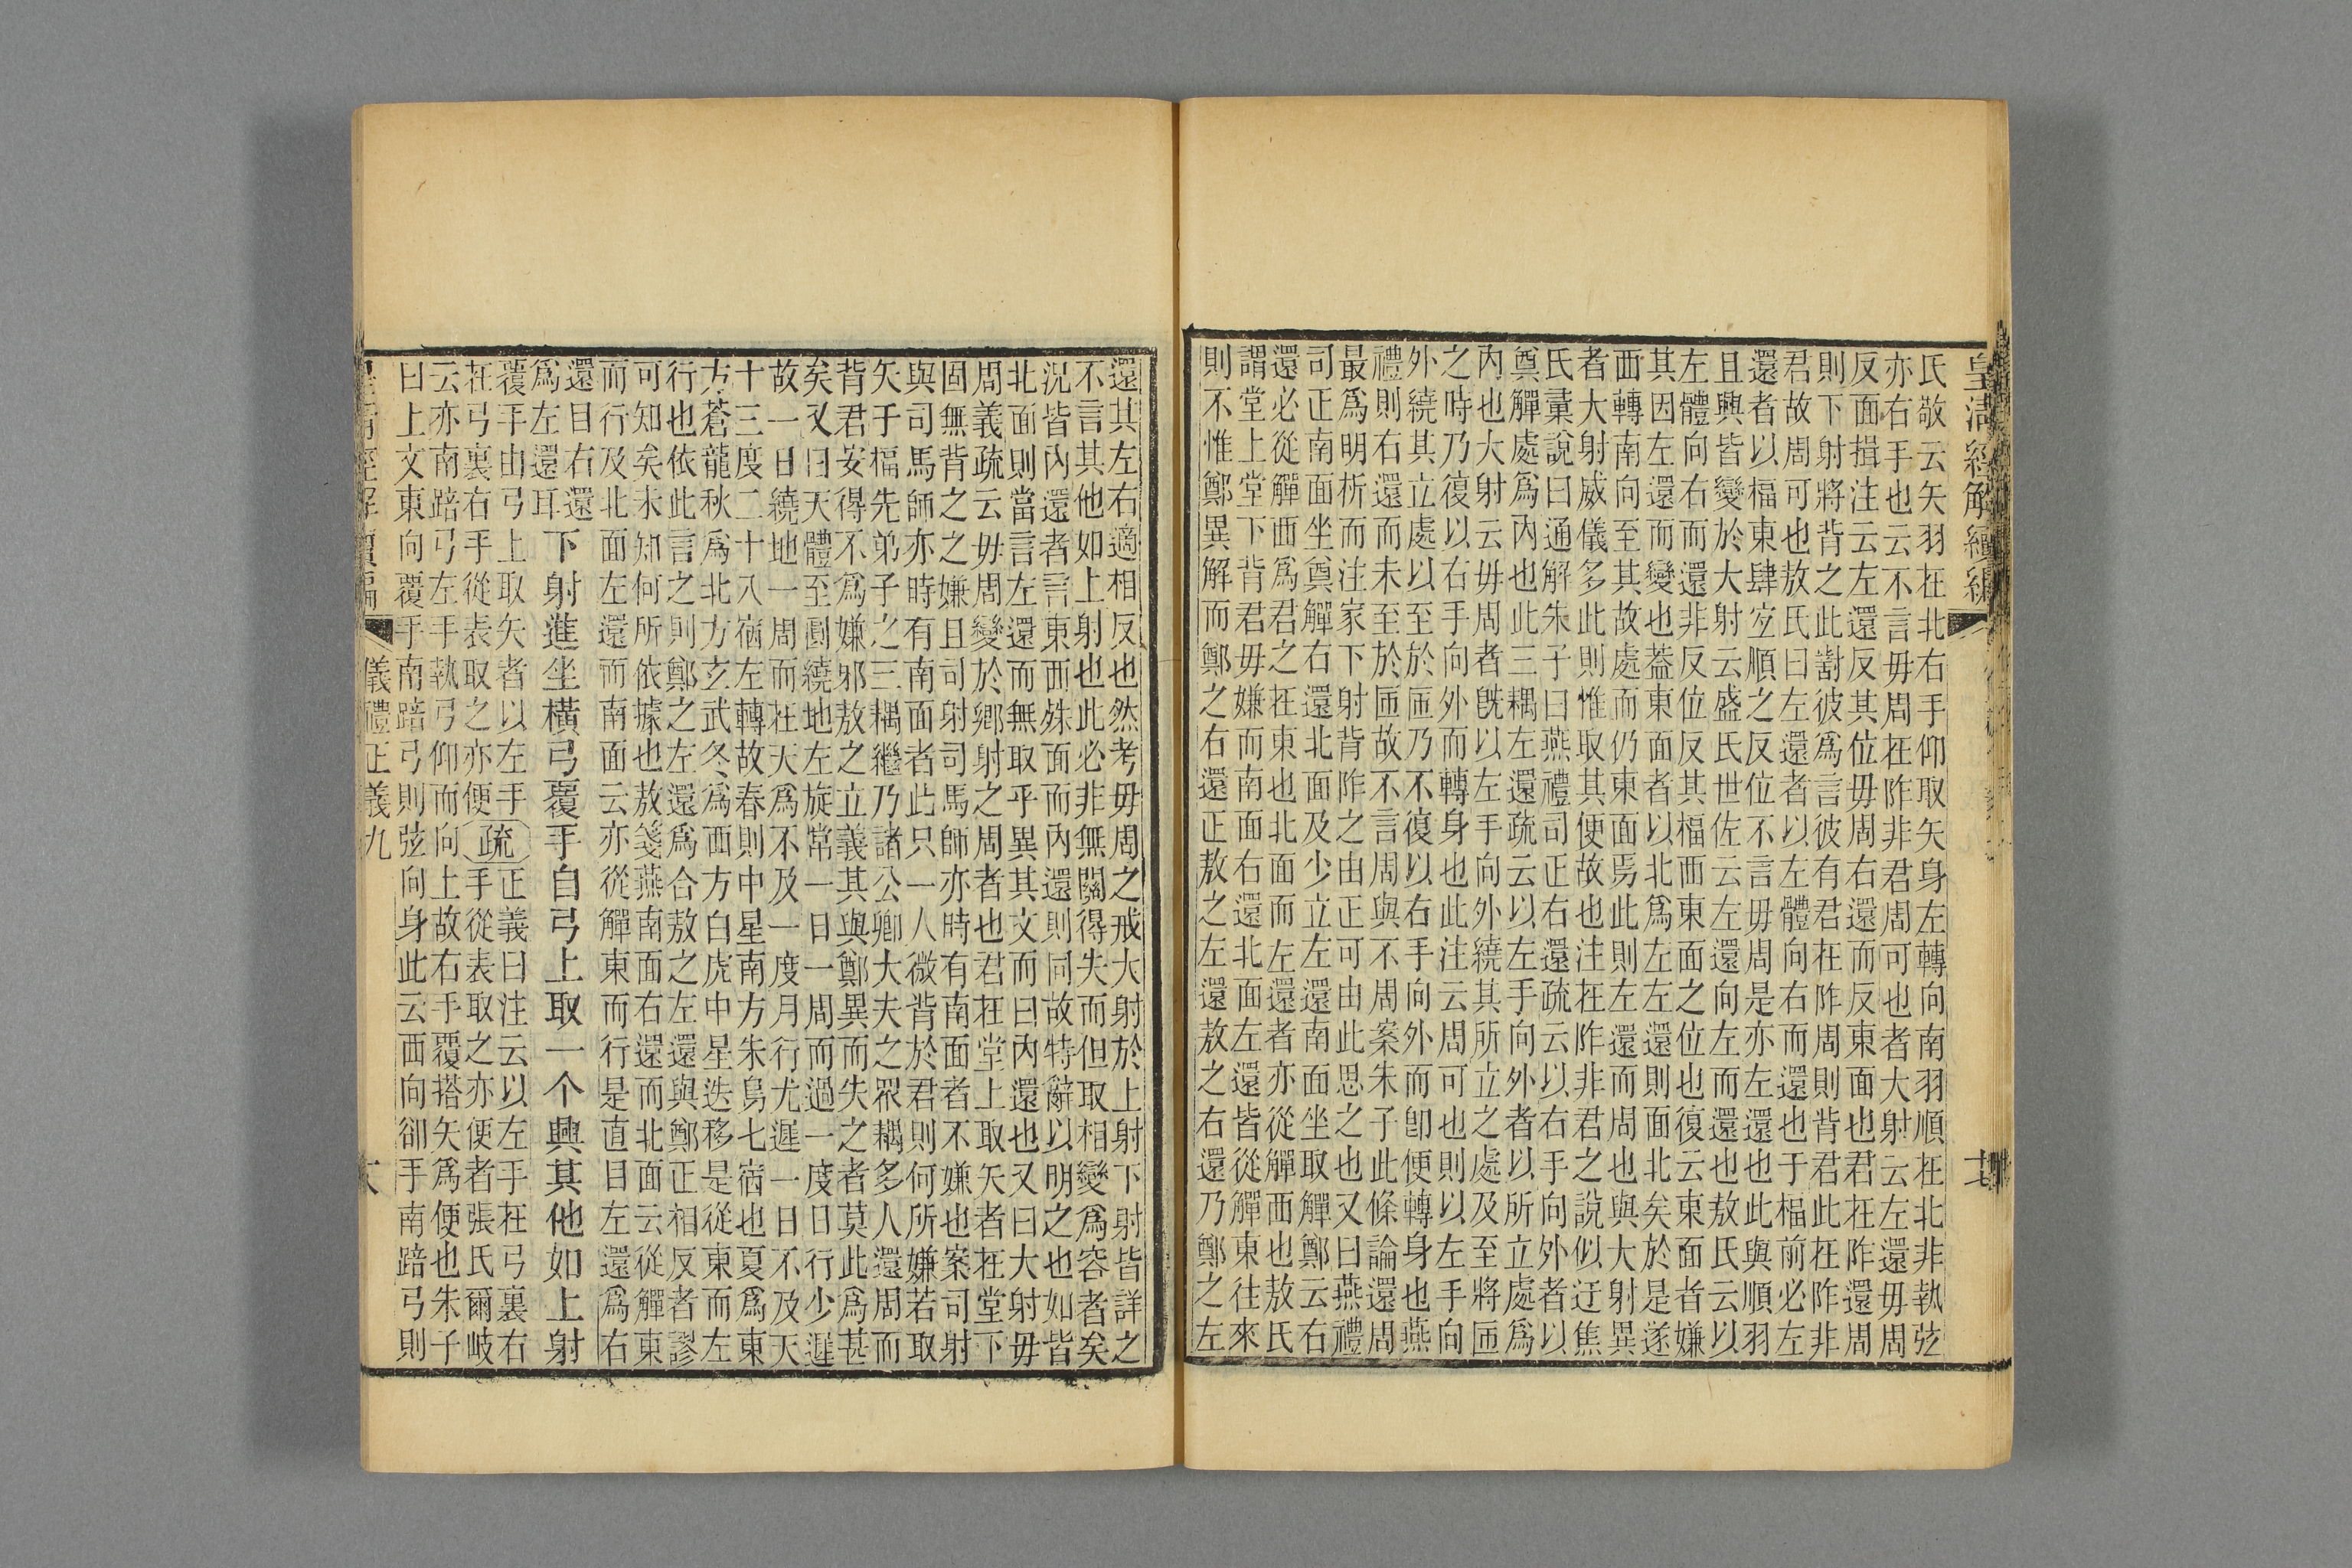 皇清經解續編
氏敬云矢羽在北右手仰取矢身左轉向南羽順在北非執弦
亦右手也云不言毋周在阼非君周可也者大射云左還毋周
反面揖注云左還反其位毋周右還而反東面也君在阼還周
則下射將背之此謝彼爲言彼有君在阼周則背君此在阼非
君故周可也敖氏曰左還者以左體向右而還也于楅前必左
還者以楅東肆宜順之反位不言毋周是亦左還也此與順羽
且興皆變於大射云盛氏世佐云左還向左而還也敖氏云以
左體向右而還非反位反其楅西東面之位也復云東面者嫌
其因左還而變也葢東面者以北爲左左還則面北矣於是遂
西轉南向至其故處而仍東面焉此則左還而周也與大射異
者大射威儀多此則惟取其便故也注在阼非君之說似迂焦
氏彙說曰通解朱子曰燕禮司正右還疏云以右手向外者以
奠觶處爲內也此三耦左還疏云以左手向外者以所立處爲
內也大射云毋周者旣以左手向外繞其所立之處及至將匝
之時乃復以右手向外而轉身也此注云周可也則以左手向
外繞其立處以至於匝乃不復以右手向外而卽便轉身也燕
禮則右還而未至於匝故不言周與不周案朱子此條論還周
最爲明析而注家下射背阼之由正可由此思之也又曰燕禮
司正南面坐奠觶右還北面及少立左還南面坐取觶鄭云右
還必從觶西爲君之在東也北面而左還者亦從觶西也敖氏
謂堂上堂下背君毋嫌而南面右還北面左還皆從觶東往來
則不惟鄭異解而鄭之右還正敖之左還敖之右還乃鄭之左
還其左右適相反也然考毋周之戒大射於上射下射皆詳之
不言其他如上射也此必非無闕得失而但取相變爲容者矣
況皆內還者言東西殊面而內還則同故特辭以明之也如皆
北面則當言左還而無取乎異其文而曰內還也又曰大射毋
周義疏云毋周變於鄉射之周者也君在堂上取矢者在堂下
固無背之之嫌且司射司馬師亦時有南面者不嫌也案司射
與司馬師亦時有南面者此只一人微背於君則何所嫌若取
矢于楅先弟子之三耦繼乃諸公卿大夫之眾耦多人還周而
背君安得不爲嫌邪敖之立義其與鄭異而失之者莫此爲甚
矣又曰天體至圓繞地左旋常一日一周而過一度日行少遲
故一日繞地一周而在天爲不及一度月行尤遲一日不及天
十三度二十八宿左轉故春則中星南方朱鳥七宿也夏爲東
方蒼龍秋爲北方玄武冬爲西方白虎中星迭移是從東而左
行也依此言之則鄭之左還爲合敖之左還與鄭正相反者謬
可知矣未知何所依據也敖箋燕南面右還而北面云從觶東
而行及北面左還而南面云亦從觶東而行是直目左還爲右
還目右還
爲左還耳下射進坐橫弓覆手自弓上取一个興其他如上射
覆手由弓上取矢者以左手在弓裏右手從表取之亦便疏正義曰注云以左手在弓裏右
在弓裏右手從表取之亦便者張氏爾岐
云亦南踣弓左手執弓仰而向上故右手覆搭矢爲便也朱子
曰上文東向覆手南踣弓則弦向身此云西向卻手南踣弓則
儀禮正義九